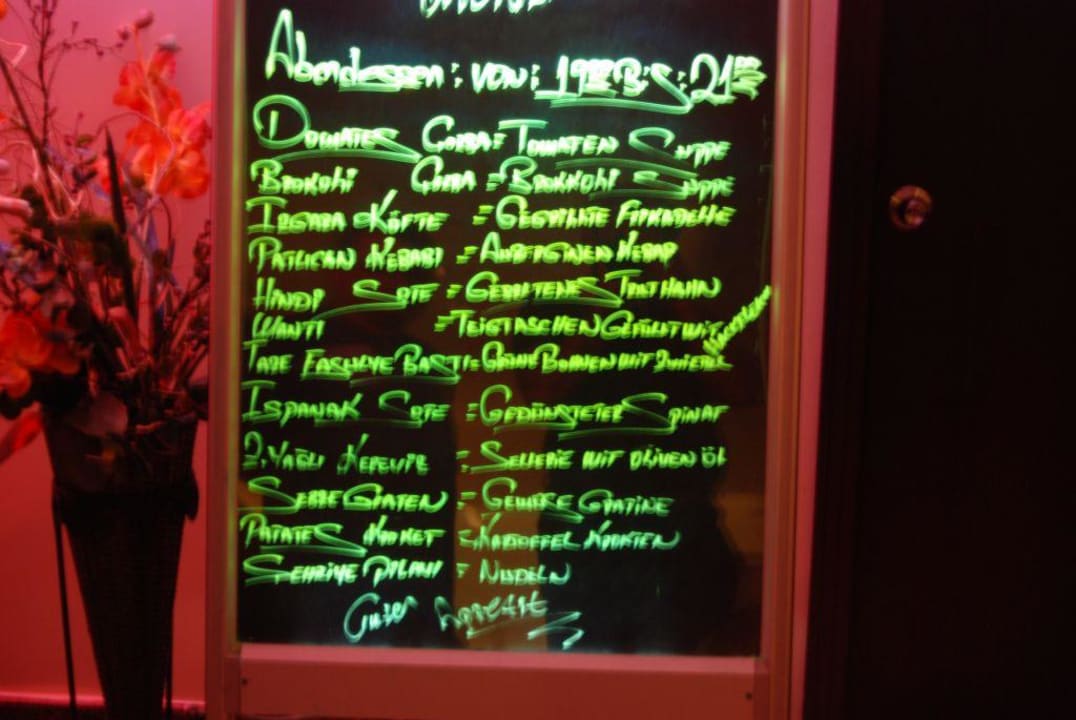 Abendessen : von : 19⁰⁰ Bis : 21⁰⁰
Domates Çorba = Tomaten Suppe
Brokoli Çorba = Brokkoli Suppe
Izgara Köfte = Gegrillte Frikadelle
Patlican Kebabi = Auberginen Kebap
Hindi Sote = Gebratenes Truthahn
Manti = Teigtaschen Gefüllt mit
Taze Fasulye Basti = Grüne Bohnen mit Zwiebel
Ispanak Sote = Gedünsteter Spinat
Z.Yağli Kereviz = Sellerie mit oliven öl
Sebze Graten = Gemüse Gratine
Patates Kroket = Kartoffel Kroketen
Sehriye Pilavi = Nudeln
Guten Appetit